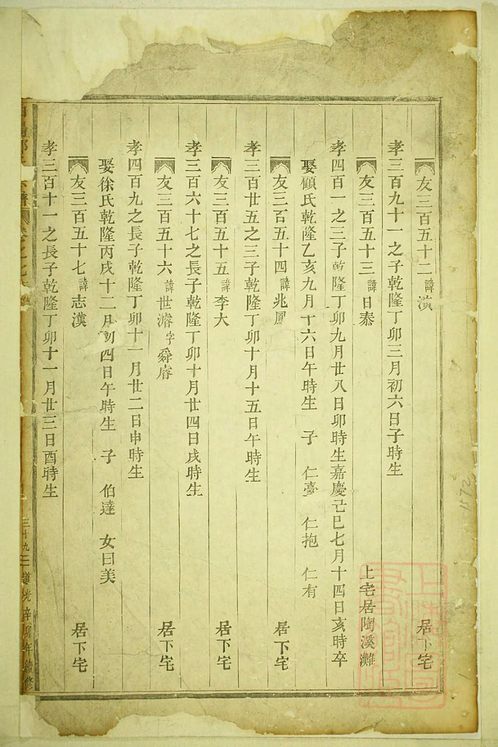 友三百五十二 諱濱 居下宅
孝三百九十一之子乾隆丁卯三月初六日子時生
友三百五十三 諱日泰 上宅居陶溪灘
孝四百一之三子乾隆丁卯九月廿八日卯時生嘉慶己巳七月十四日亥時卒
娶顧氏乾隆乙亥九月十六日午時生 子 仁臺 仁抱 仁有
友三百五十四 諱兆鳳 居下宅
孝三百廿五之三子乾隆丁卯十月十五日午時生
友三百五十五 諱李大 居下宅
孝三百六十七之長子乾隆丁卯十月廿四日戌時生
友三百五十六 諱世濬 字舜睿 居下宅
孝四百九之長子乾隆丁卯十一月廿二日申時生
娶徐氏乾隆丙戌十二月初四日午時生 子 伯達 女曰美
友三百五十七 諱志漢 居下宅
孝三百十一之長子乾隆丁卯十一月廿三日酉時生
1172